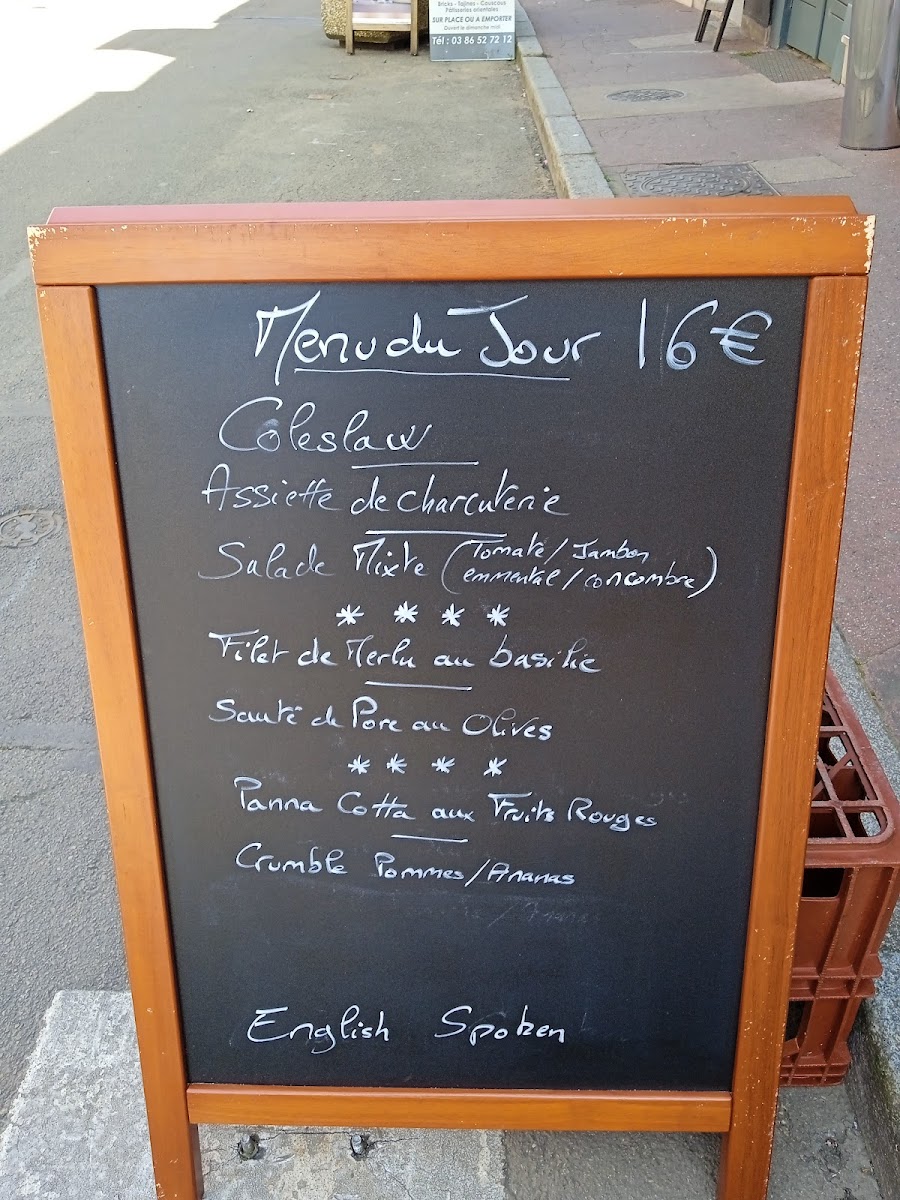 Bricks - Tajines - Couscous
Pâtisseries orientales
SUR PLACE OU A EMPORTER
Ouvert le dimanche midi
Tél : 03 86 52 72 12
Menu du Jour 16€
Coleslaw
Assiette de charcuterie
Salade Mixte (Tomate/Jambon
emmental/concombre)
* * * *
Filet de Merlu au basilic
Sauté de Porc au Olives
* * * *
Panna Cotta aux Fruits Rouges
Crumble Pommes/Ananas
English Spoken